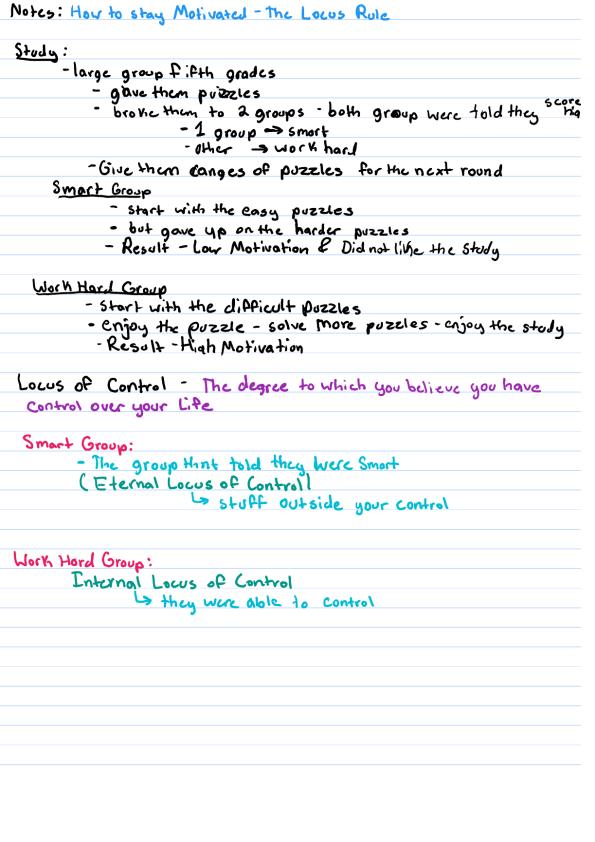 Notes: How to stay Motivated - The Locus Rule
Study:
- large group fifth grades
- gave them puzzles
- broke them to 2 groups - both group were told they score hig
- 1 group → smart
- other → work hard
- Give them ranges of puzzles for the next round
Smart Group
- start with the easy puzzles
- but gave up on the harder puzzles
- Result - Low Motivation & Did not like the study
Work Hard Group
- start with the difficult puzzles
- enjoy the puzzle - solve more puzzles - enjoy the study
- Result - High Motivation
Locus of Control - The degree to which you believe you have
control over your life
Smart Group:
- The group told they were Smart
(Eternal Locus of Control)
↳ stuff outside your control
Work Hard Group:
Internal Locus of Control
↳ they were able to control